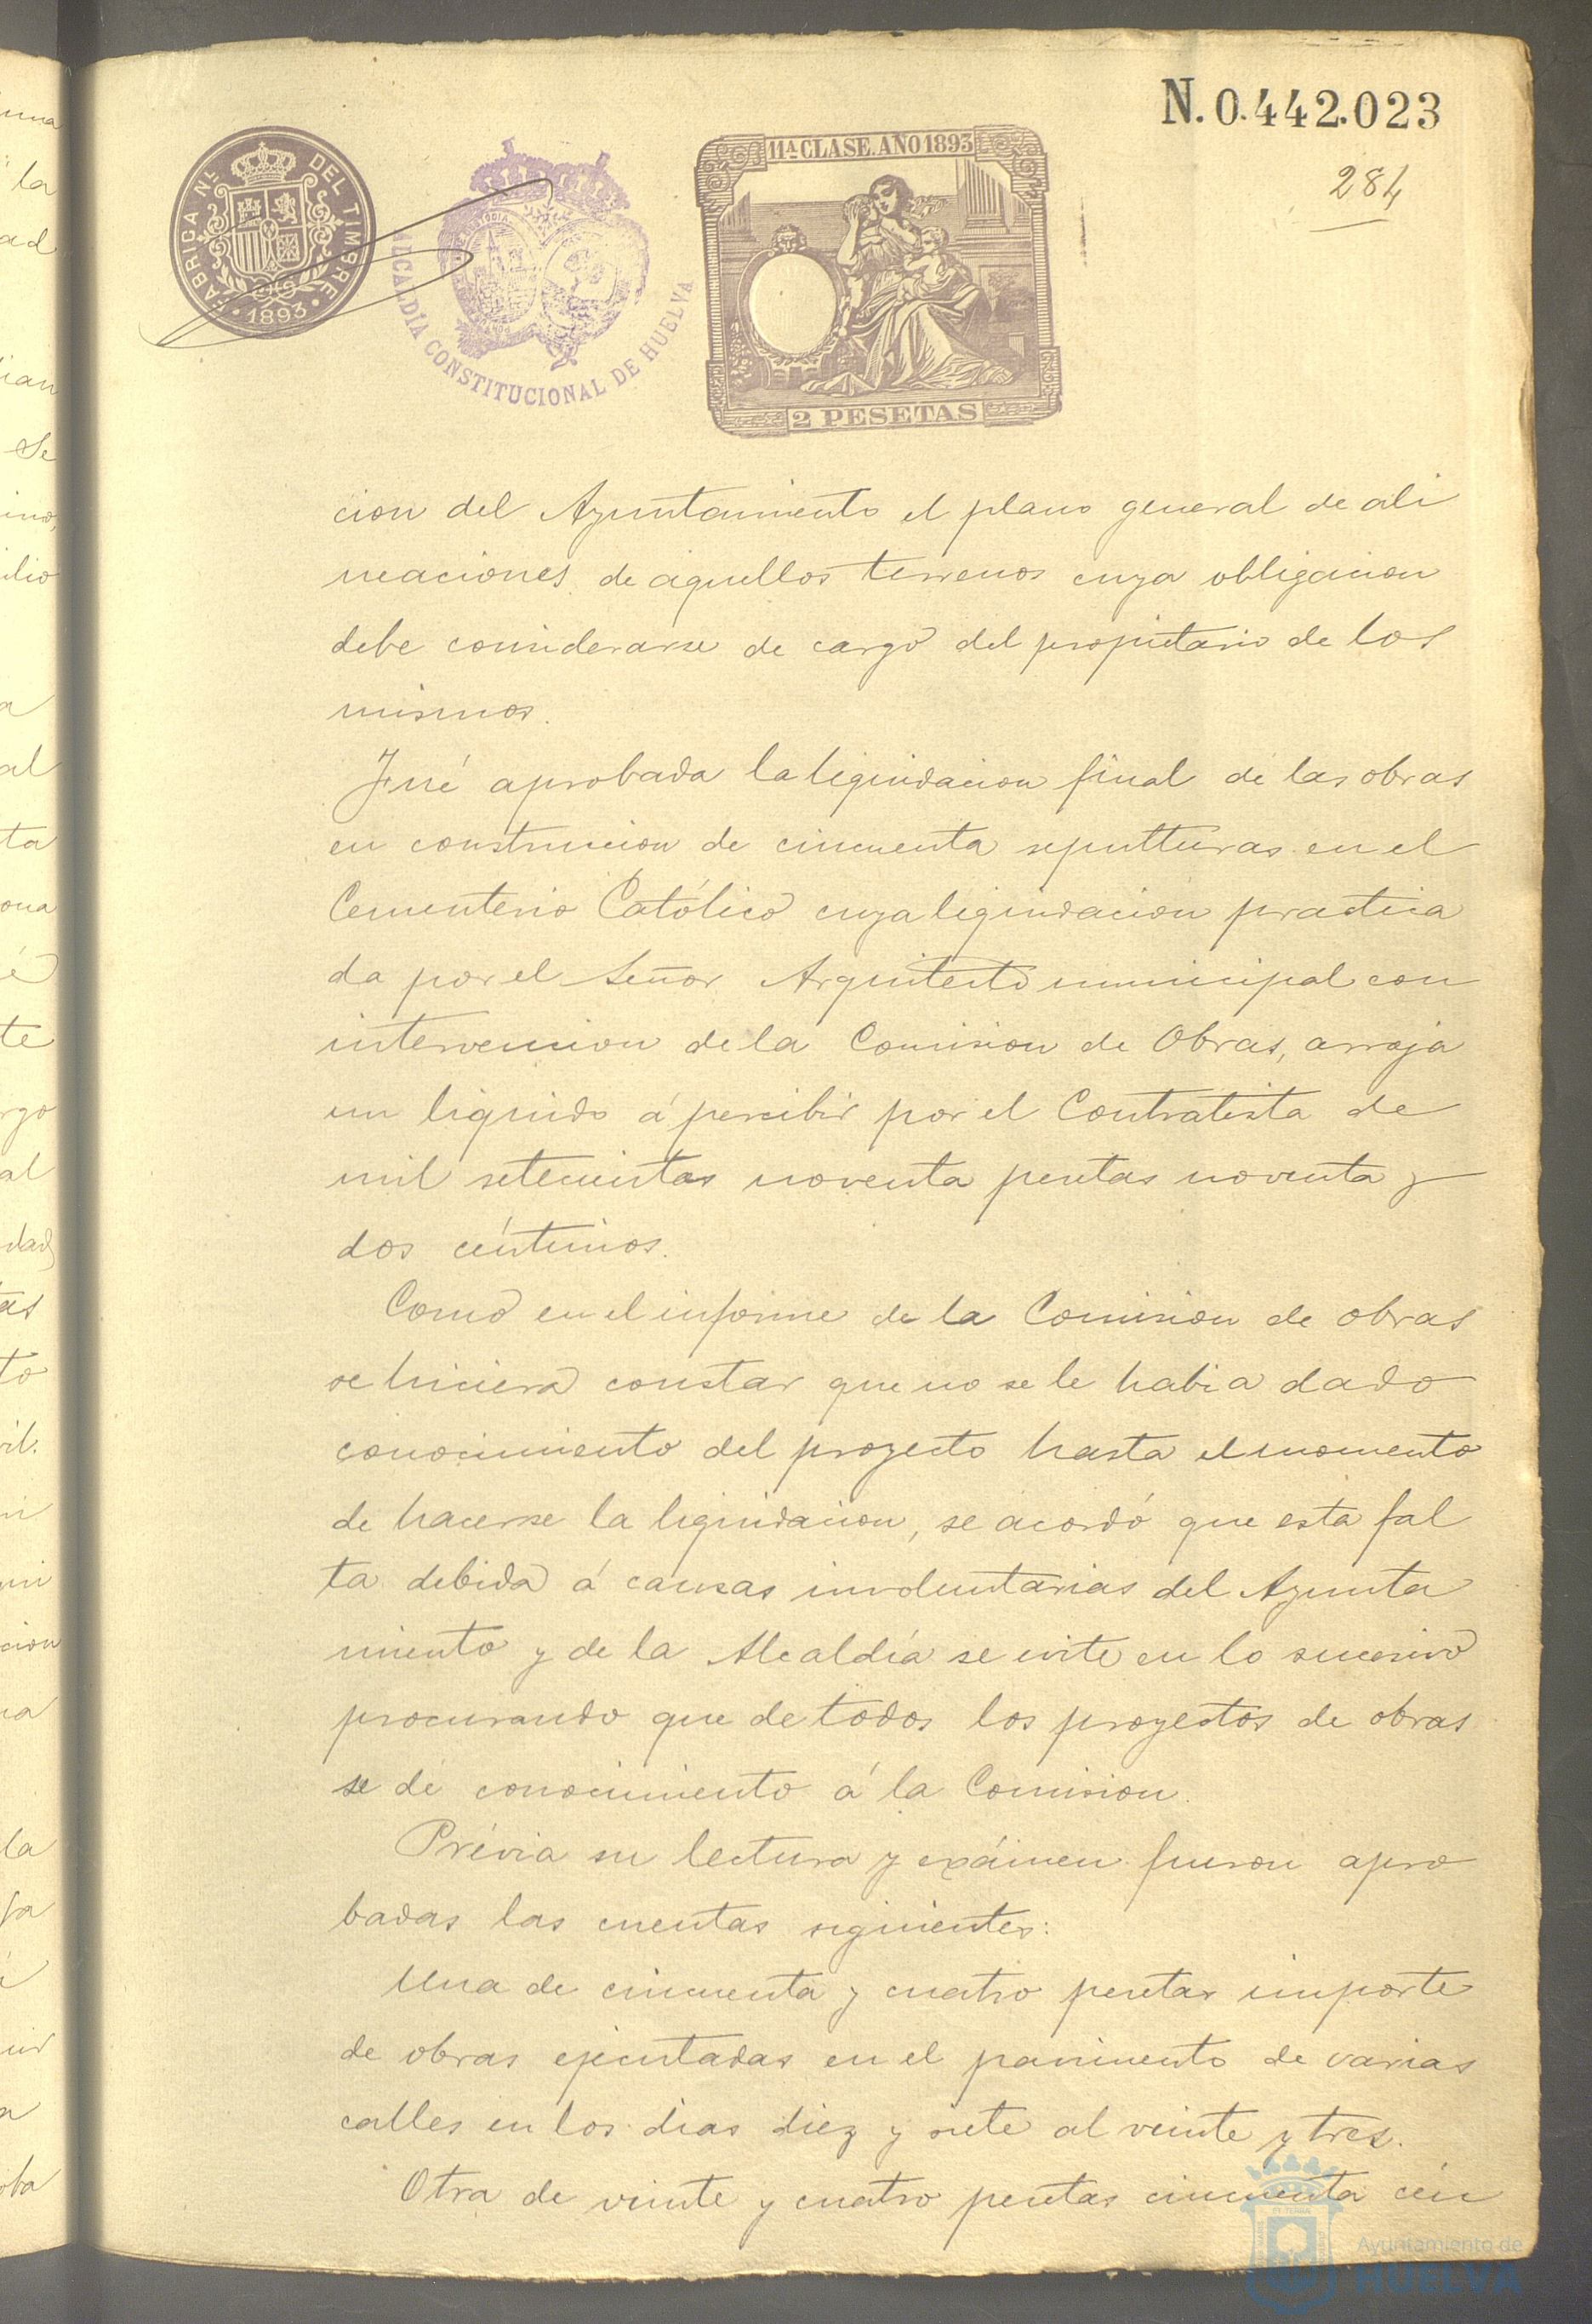 N. 0.442.023
284
FABRICA NL. DEL TIMBRE
1893
ALCALDÍA CONSTITUCIONAL DE HUELVA
11ª CLASE. AÑO 1893
2 PESETAS
cion del Ayuntamiento el plano general de ali
neaciones de aquellos terrenos cuya obligacion
debe considerarse de cargo del propietario de los
mismos.
Fué aprobada la liquidacion final de las obras
en construccion de cincuenta sepultturas en el
Cementerio Católico cuya liquidacion practica
da por el Señor Arquitecto municipal con
intervencion de la Comision de Obras, arroja
un liquido á percibir por el Contratista de
mil setecientas noventa pesetas noventa y
dos céntimos.
Como en el informe de la Comision de obras
se hiciera constar que no se le habia dado
conocimiento del proyecto hasta el momento
de hacerse la liquidacion, se acordó que esta fal
ta debida á causas involuntarias del Ayunta
miento y de la Alcaldía se evite en lo sucesivo
procurando que de todos los proyectos de obras
se dé conocimiento á la Comision.
Prévia su lectura y exámen fueron apro
badas las cuentas siguientes:
Una de cincuenta y cuatro pesetas importe
de obras ejecutadas en el pavimento de varias
calles en los dias diez y siete al veinte y tres.
Otra de veinte y cuatro pesetas cincuenta cén
Ayuntamiento de
HUELVA